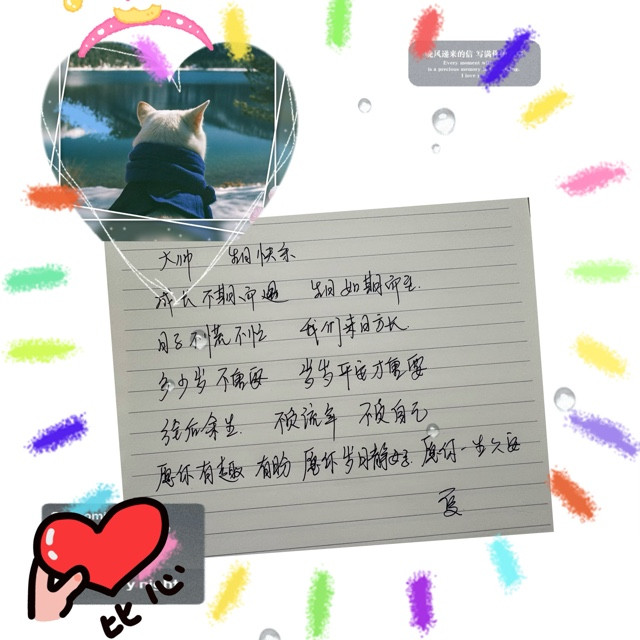 晚风递来的信 写满
Every moment
is a precious memory
I love
大帅 生日快乐
成长不期而遇 生日如期而至.
日子不慌不忙 我们来日方长.
多少岁不重要 岁岁平安才重要
往后余生. 不负流年 不负自己
愿你有趣 有盼 愿你岁月静好. 愿你一生久安
夏
y night
比心